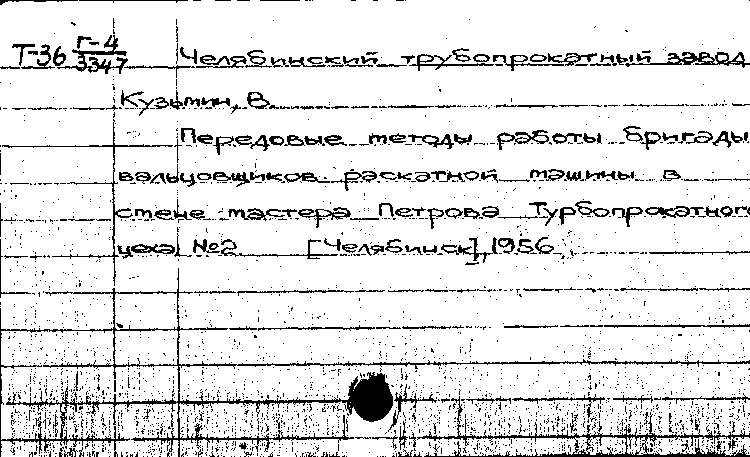 Т-36 Г-4/3347 Челябинский трубопрокатный завод
Кузьмин, В.
Передовые методы работы бригады
вальцовщиков раскатной машины в
смене мастера Петрова Турбопрокатного
цеха №2 [Челябинск], 1956